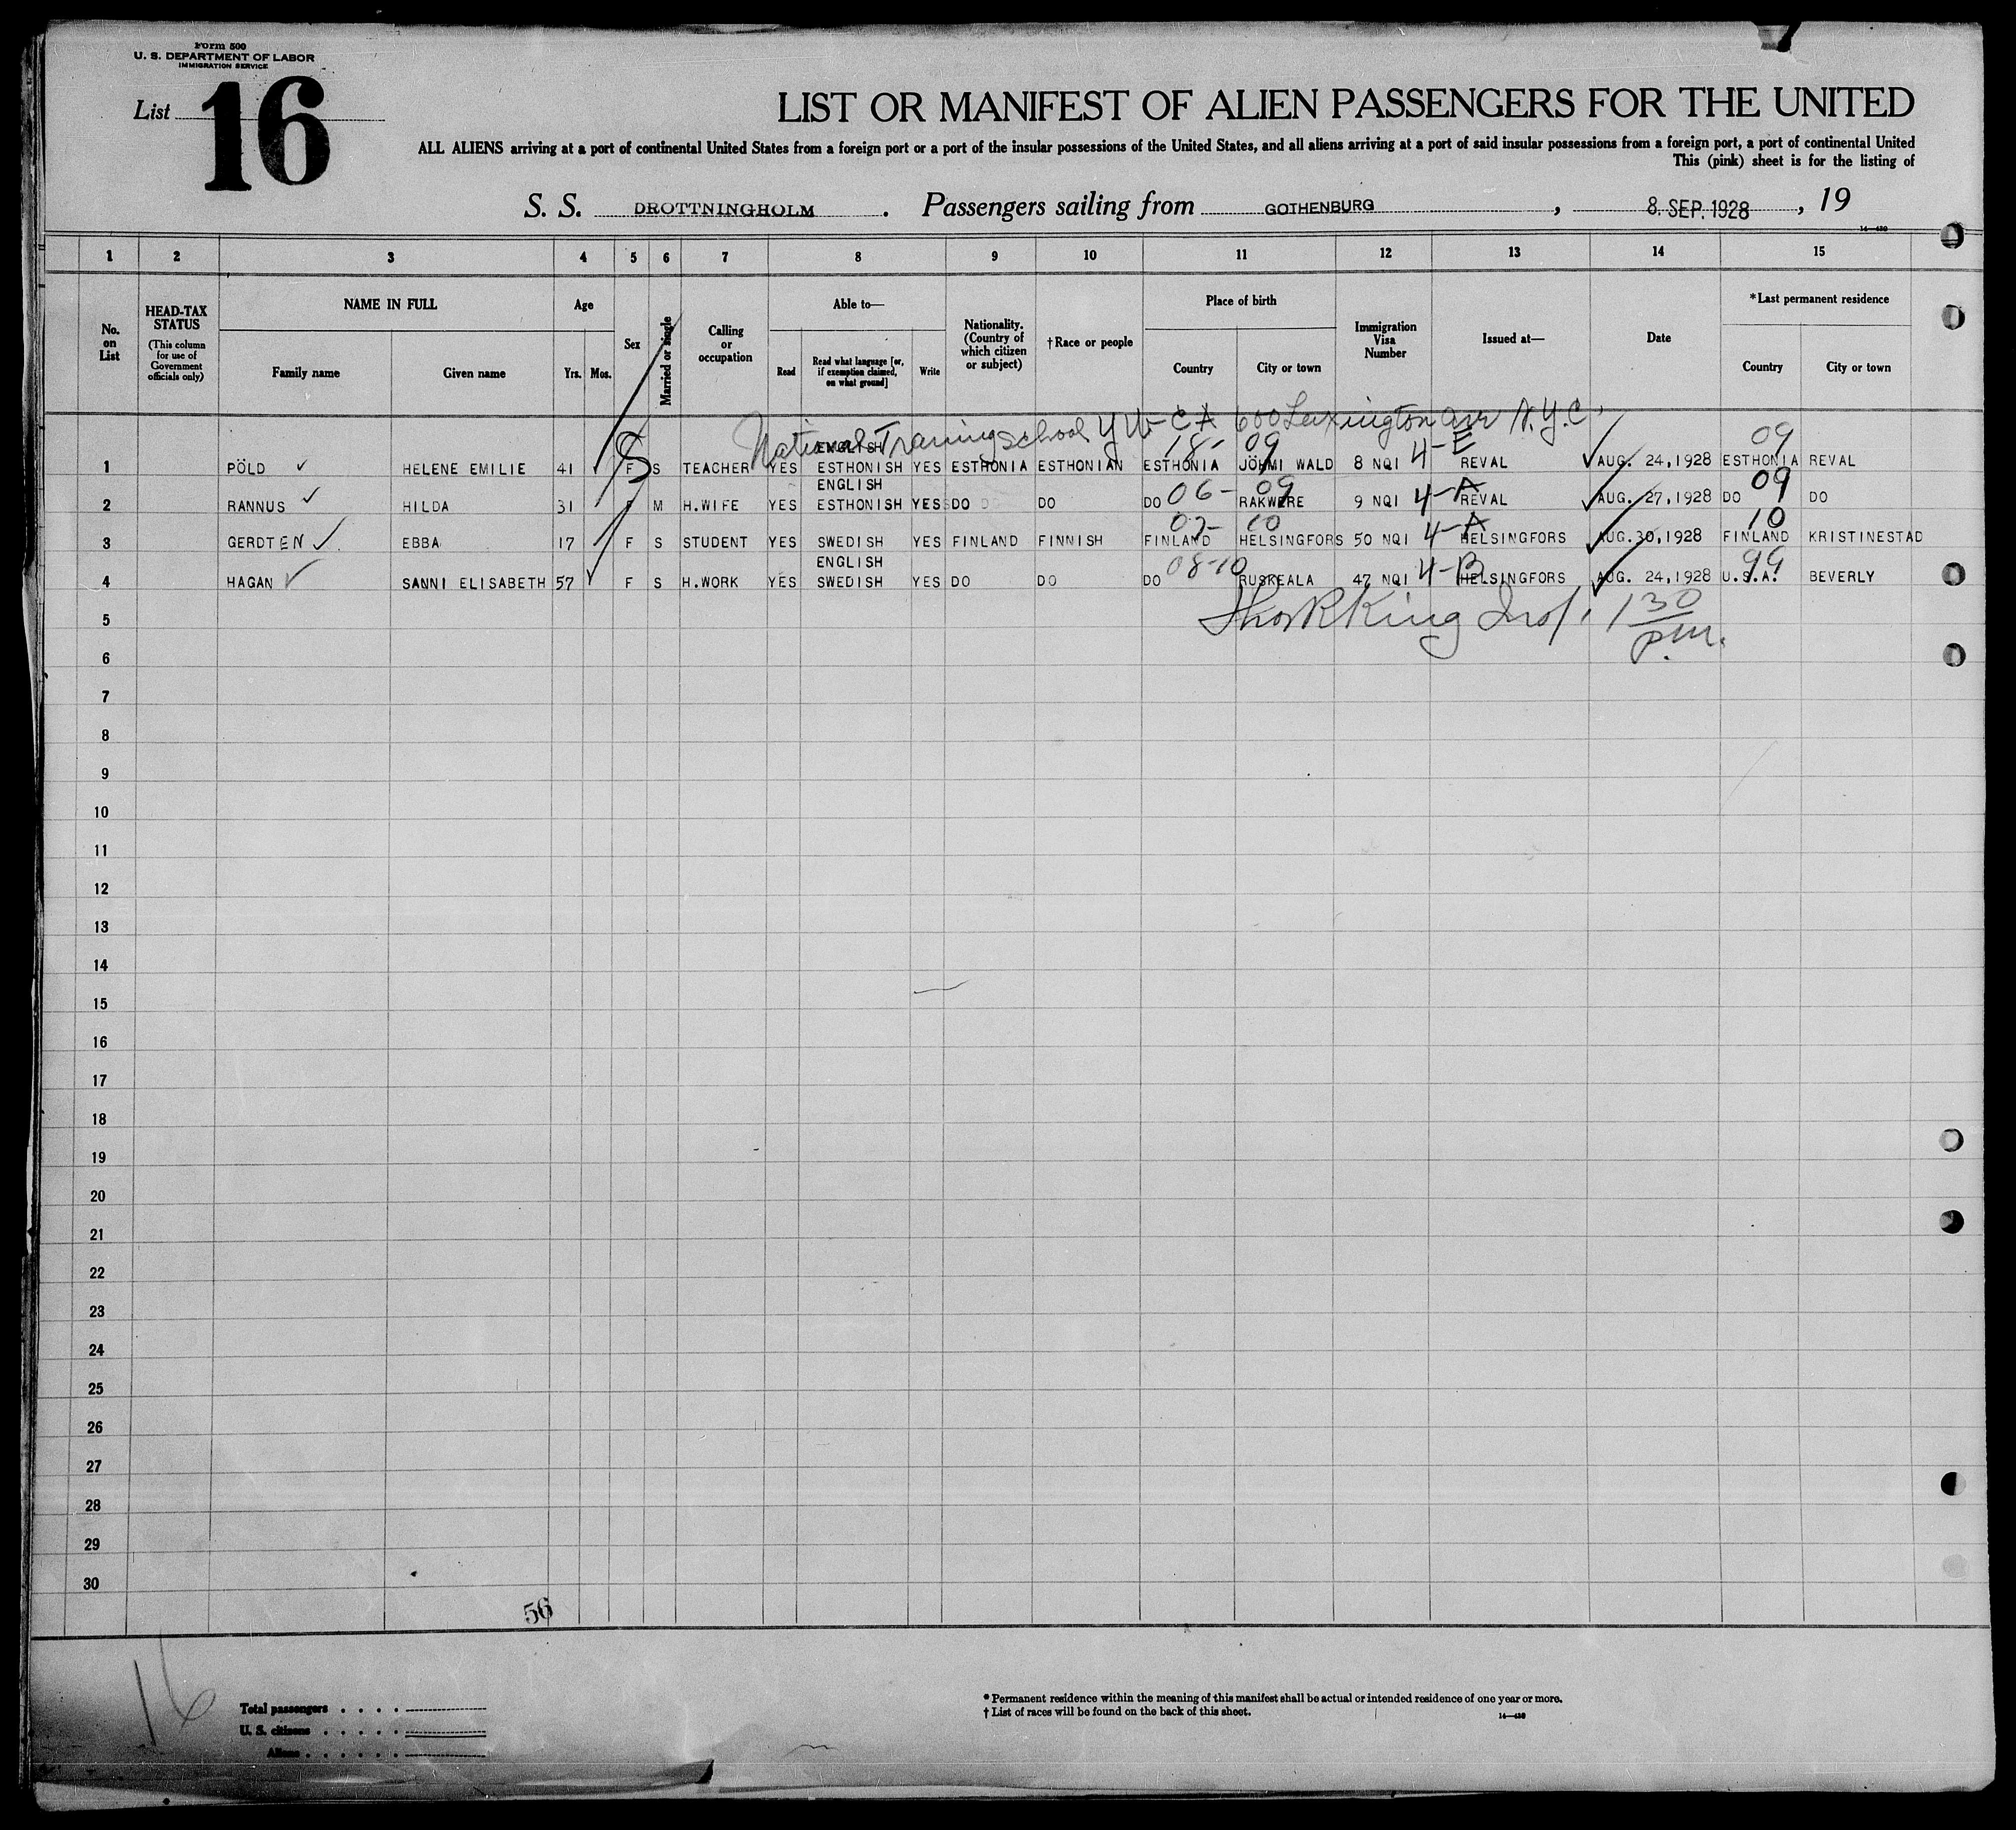 Form 500
U. S. DEPARTMENT OF LABOR
IMMIGRATION SERVICE
List 16
LIST OR MANIFEST OF ALIEN PASSENGERS FOR THE UNITED
ALL ALIENS arriving at a port of continental United States from a foreign port or a port of the insular possessions of the United States, and all aliens arriving at a port of said insular possessions from a foreign port, a port of continental United
This (pink) sheet is for the listing of
S. S. DROTTNINGHOLM. Passengers sailing from GOTHENBURG, 8. SEP. 1928, 19
14—430
1 2 3 4 5 6 7 8 9 10 11 12 13 14 15
No. on List
HEAD-TAX STATUS (This column for use of Government officials only)
NAME IN FULL
Family name Given name
Age
Yrs. Mos.
Sex
Married or single
Calling or occupation
Able to—
Read Read what language [or, if exemption claimed, on what ground] Write
Nationality. (Country of which citizen or subject)
†Race or people
Place of birth
Country City or town
Immigration Visa Number
Issued at—
Date
*Last permanent residence
Country City or town
National Training School Y W C A 600 Lexington ave N.Y.C.
ENGLISH 18- 09 4-E 09
1 PÖLD HELENE EMILIE 41 F S TEACHER YES ESTHONISH YES ESTHONIA ESTHONIAN ESTHONIA JÖHMI WALD 8 NQI REVAL AUG. 24,1928 ESTHONIA REVAL
ENGLISH
2 RANNUS HILDA 31 F M H.WIFE YES ESTHONISH YES DO DO DO 06-09 RAKWERE 9 NQI 4-A REVAL AUG. 27,1928 DO 09 DO
07- 10 10
3 GERDTEN EBBA 17 F S STUDENT YES SWEDISH YES FINLAND FINNISH FINLAND HELSINGFORS 50 NQI 4-A HELSINGFORS AUG.30,1928 FINLAND KRISTINESTAD
ENGLISH
4 HAGAN SANNI ELISABETH 57 F S H.WORK YES SWEDISH YES DO DO DO 08-10 RUSKEALA 47 NQI 4-B HELSINGFORS AUG. 24,1928 U.S.A. 99 BEVERLY
5 King 1 30
6 p.m.
7
8
9
10
11
12
13
14
15
16
17
18
19
20
21
22
23
24
25
26
27
28
29
30
56
16
Total passengers
U. S. citizens
Aliens
* Permanent residence within the meaning of this manifest shall be actual or intended residence of one year or more.
† List of races will be found on the back of this sheet.
14—430